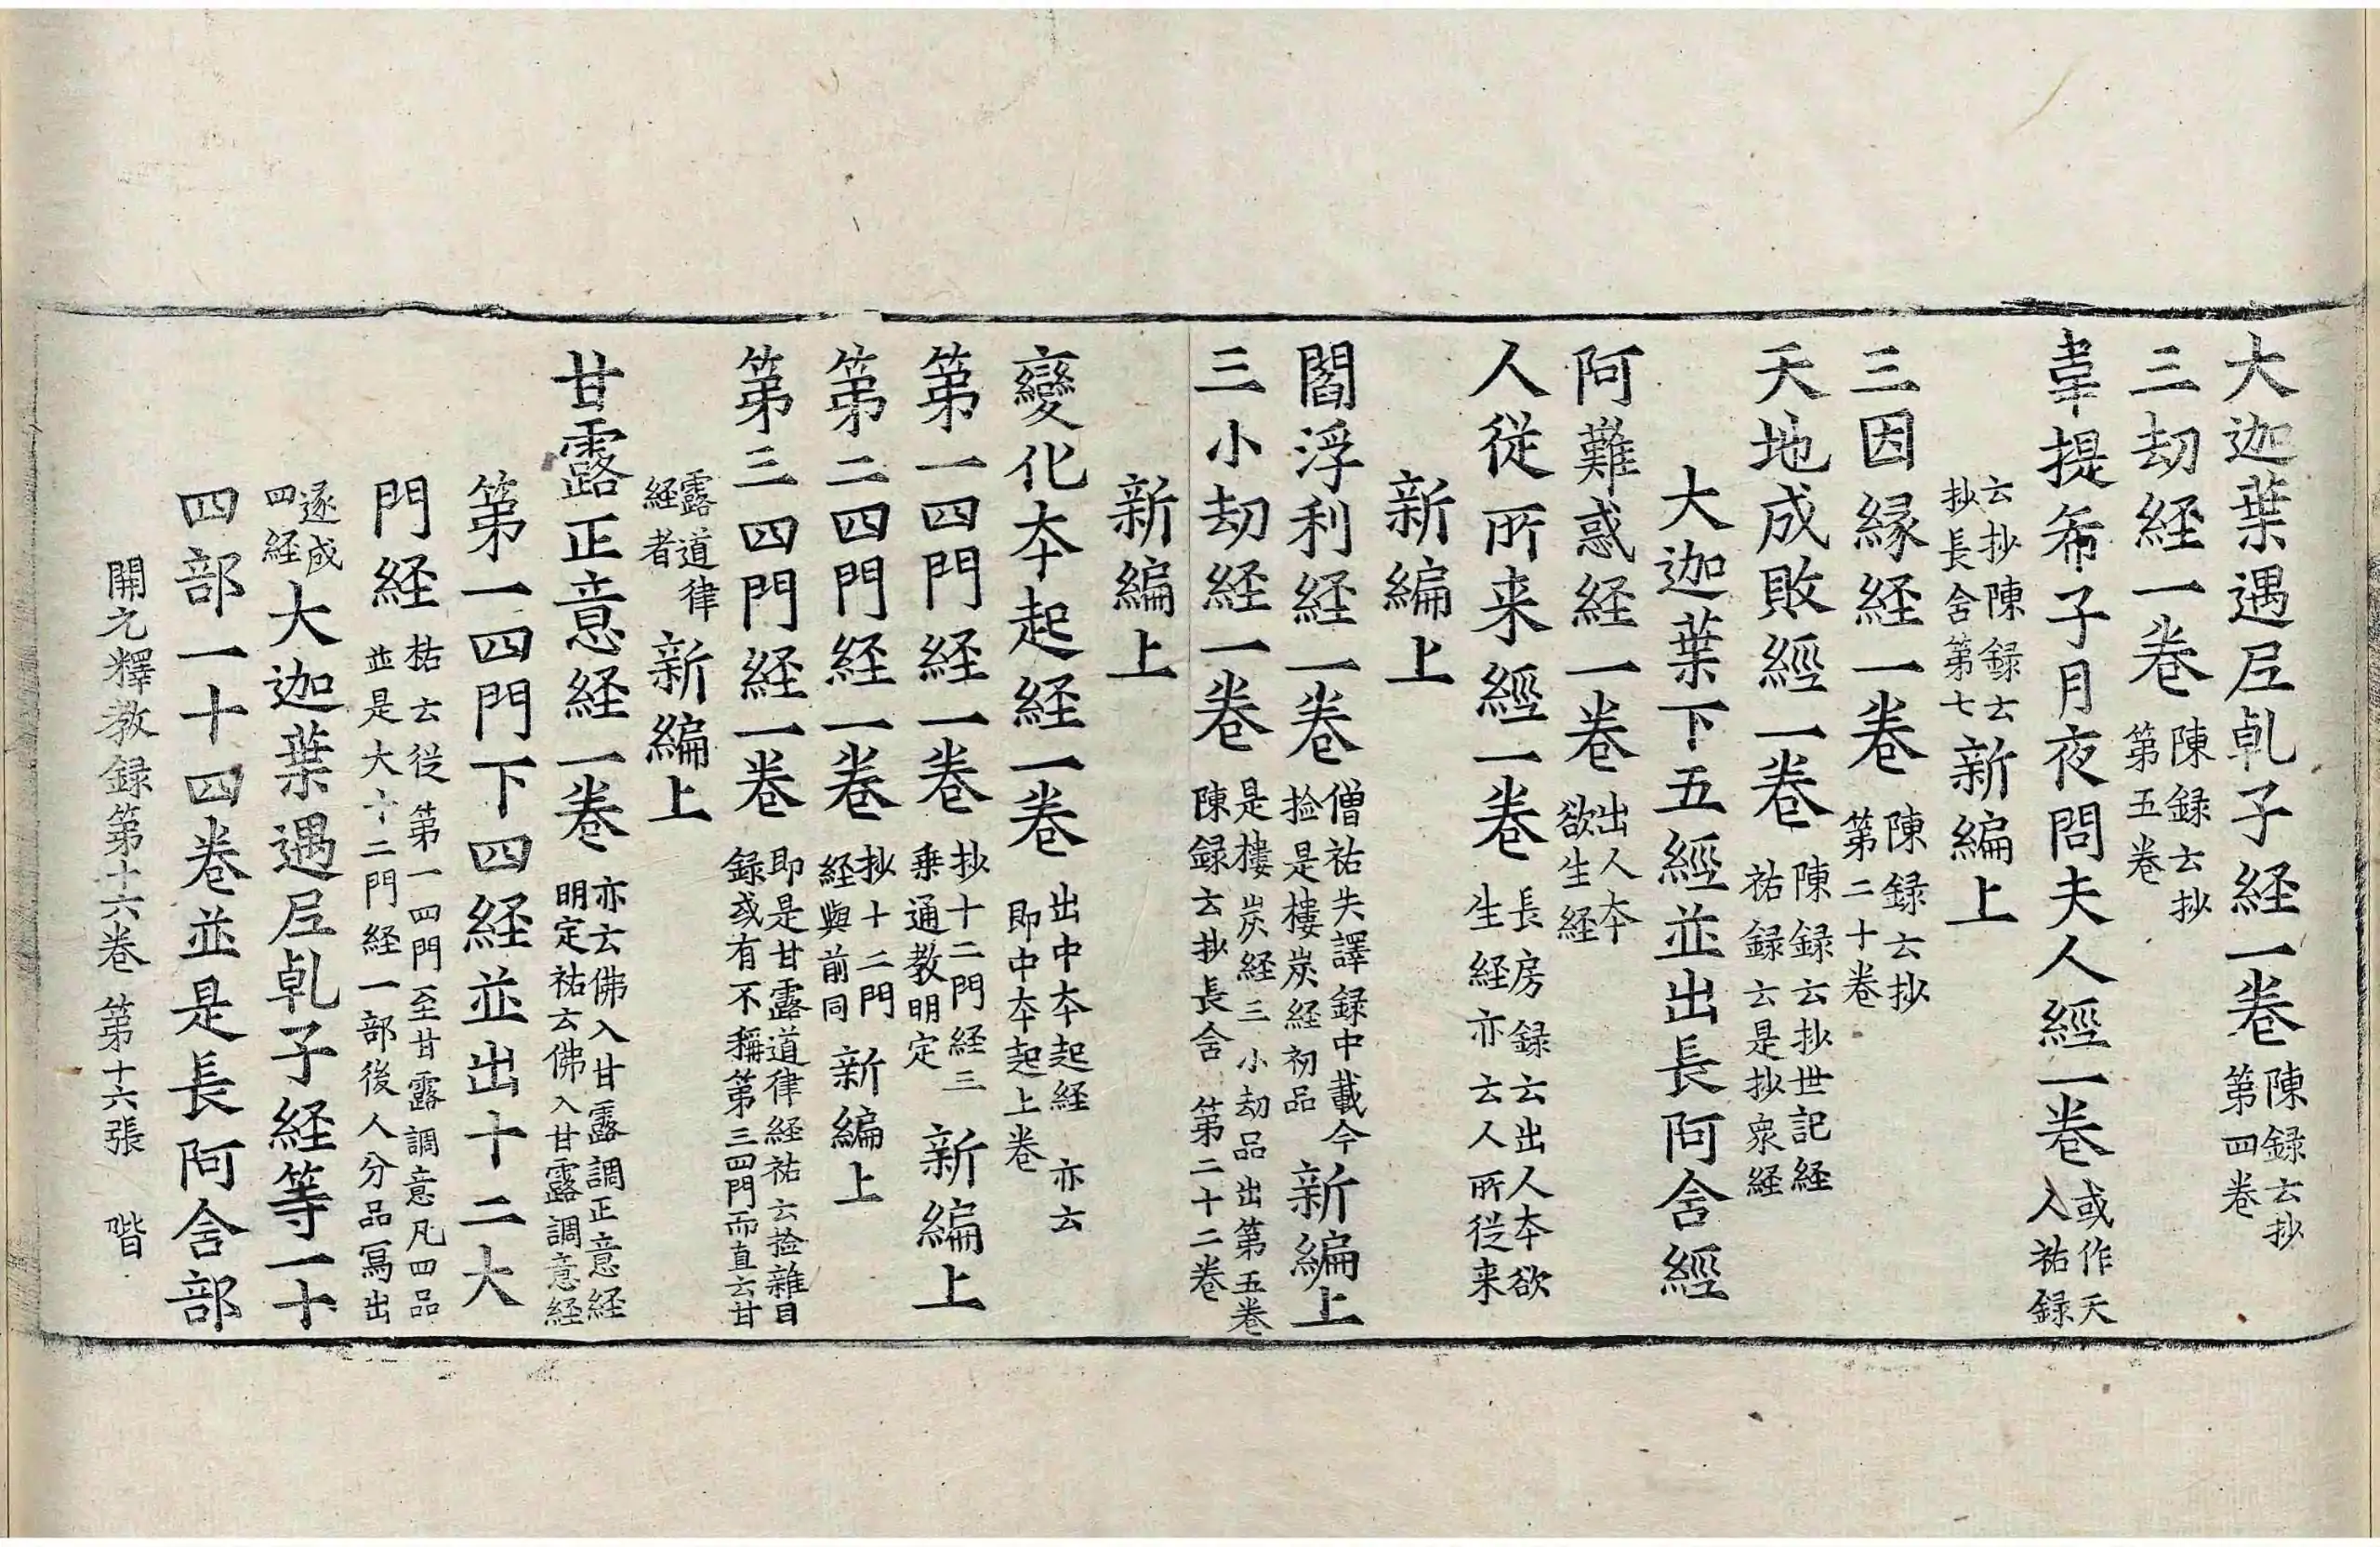 大迦葉遇尼乹子経一卷陳録云抄第四卷
三劫経一卷陳録云抄第五卷
韋提希子月夜問夫人經一卷或作天入祐録
云抄陳録云抄長舍第七新編上
三因縁経一卷陳録云抄第二十卷
天地成敗經一卷陳録云抄世記経祐録云是抄衆経
大迦葉下五經並出長阿舍經
阿難惑経一卷出人夲欲生経
人從所来經一卷長房録云出人夲欲生経亦云人所従来
新編上
閻浮利経一卷僧祐失譯録中載今捡是樓炭経初品新編上
三小劫経一卷是樓炭経三小劫品出第五卷陳録云抄長舍第二十二卷
新編上
變化夲起経一卷出中夲起経亦云即中夲起上卷
第一四門経一卷抄十二門経三乗通教明定新編上
第二四門経一卷抄十二門経與前同新編上
第三四門経一卷即是甘露道律経祐云捡雜目録或有不稱第三四門而直云甘
露道律経者新編上
甘露正意経一卷亦云佛入甘露調正意経明定祐云佛入甘露調意経
第一四門下四経並出十二大
門経祐云従第一四門至甘露調意凡四品並是大十二門経一部後人分品寫出
逐成四経大迦葉遇尼乹子経等一十
四部一十四卷並是長阿舍部
開元釋教録第十六卷 第十六張 階